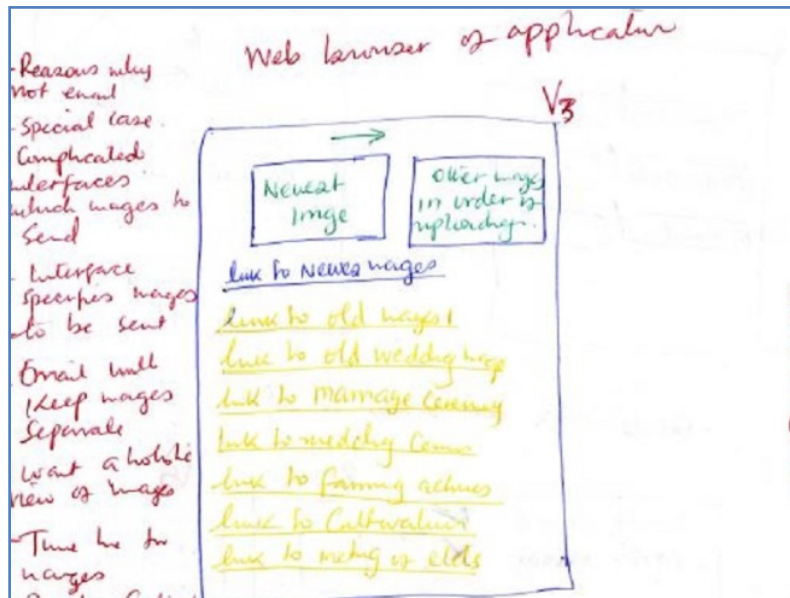 Web browser of application
V3
- Reasons why
not email
- Special case.
Complicated
interfaces
which images to
Send
- Interface
specifies images
to be sent
- Email will
Keep images
Separate
- want a holistic
view of images
- Time line for
images
Newest
Image
Older images
in order of
uploading.
link to Newest images
link to old images 1
link to old wedding image
link to marriage ceremony
link to wedding
link to farming
link to Cultivation
link to meeting of elders